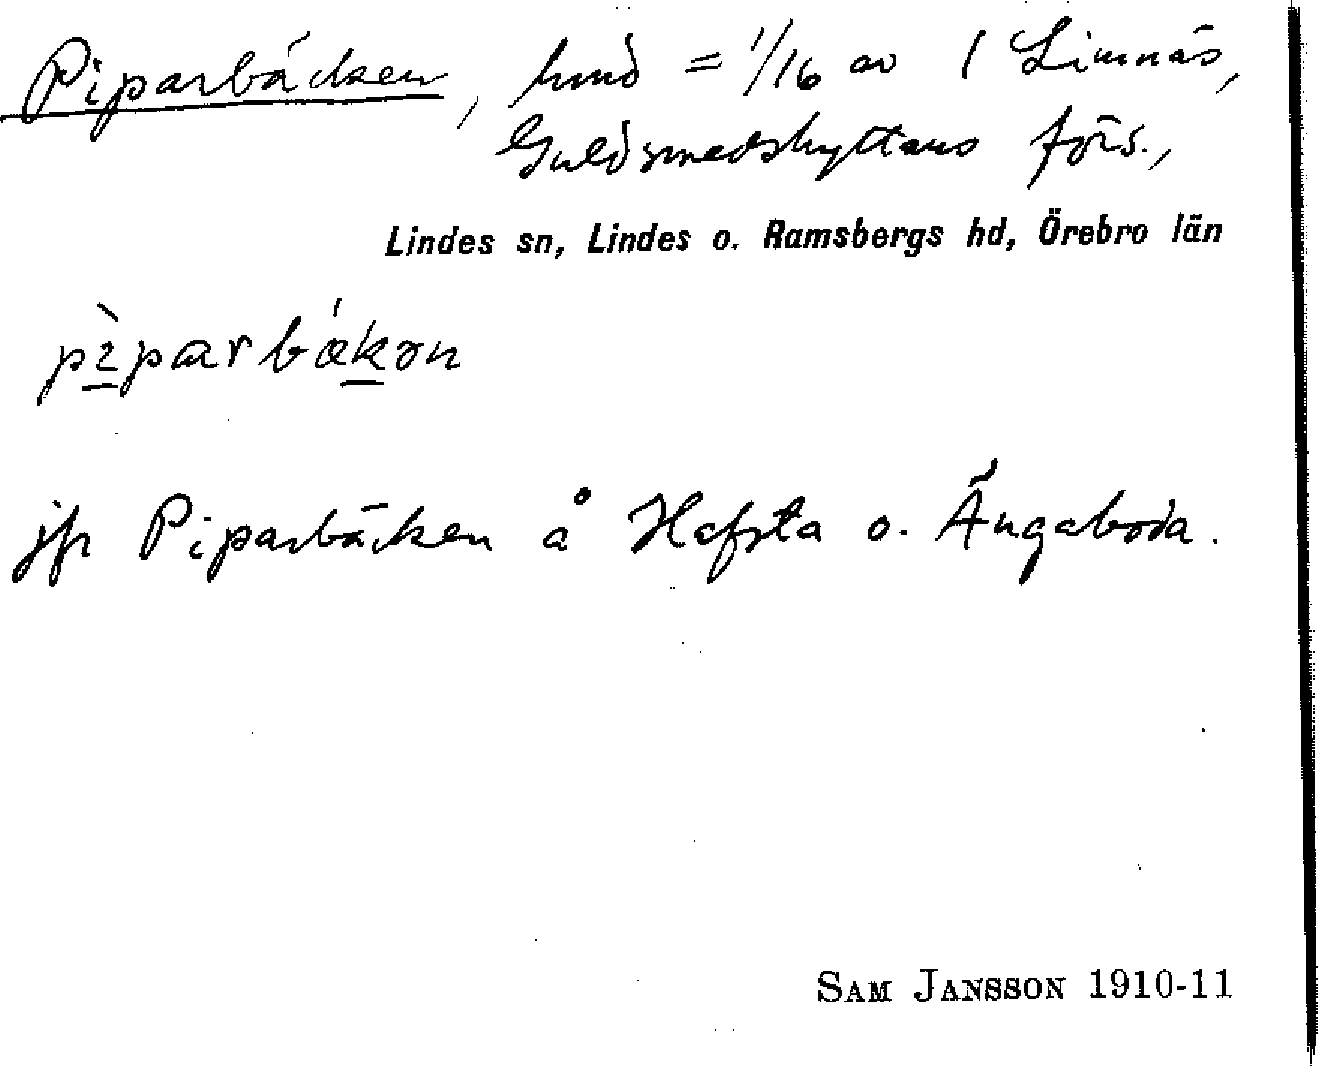 Piparbäcken, hmd = 1/16 av 1 Limnäs,
Guldsmedshyttans förs.,
Lindes sn, Lindes o. Ramsbergs hd, Örebro län
jfr Piparbäcken å Hafsta o. Ängaboda.
SAM JANSSON 1910-11